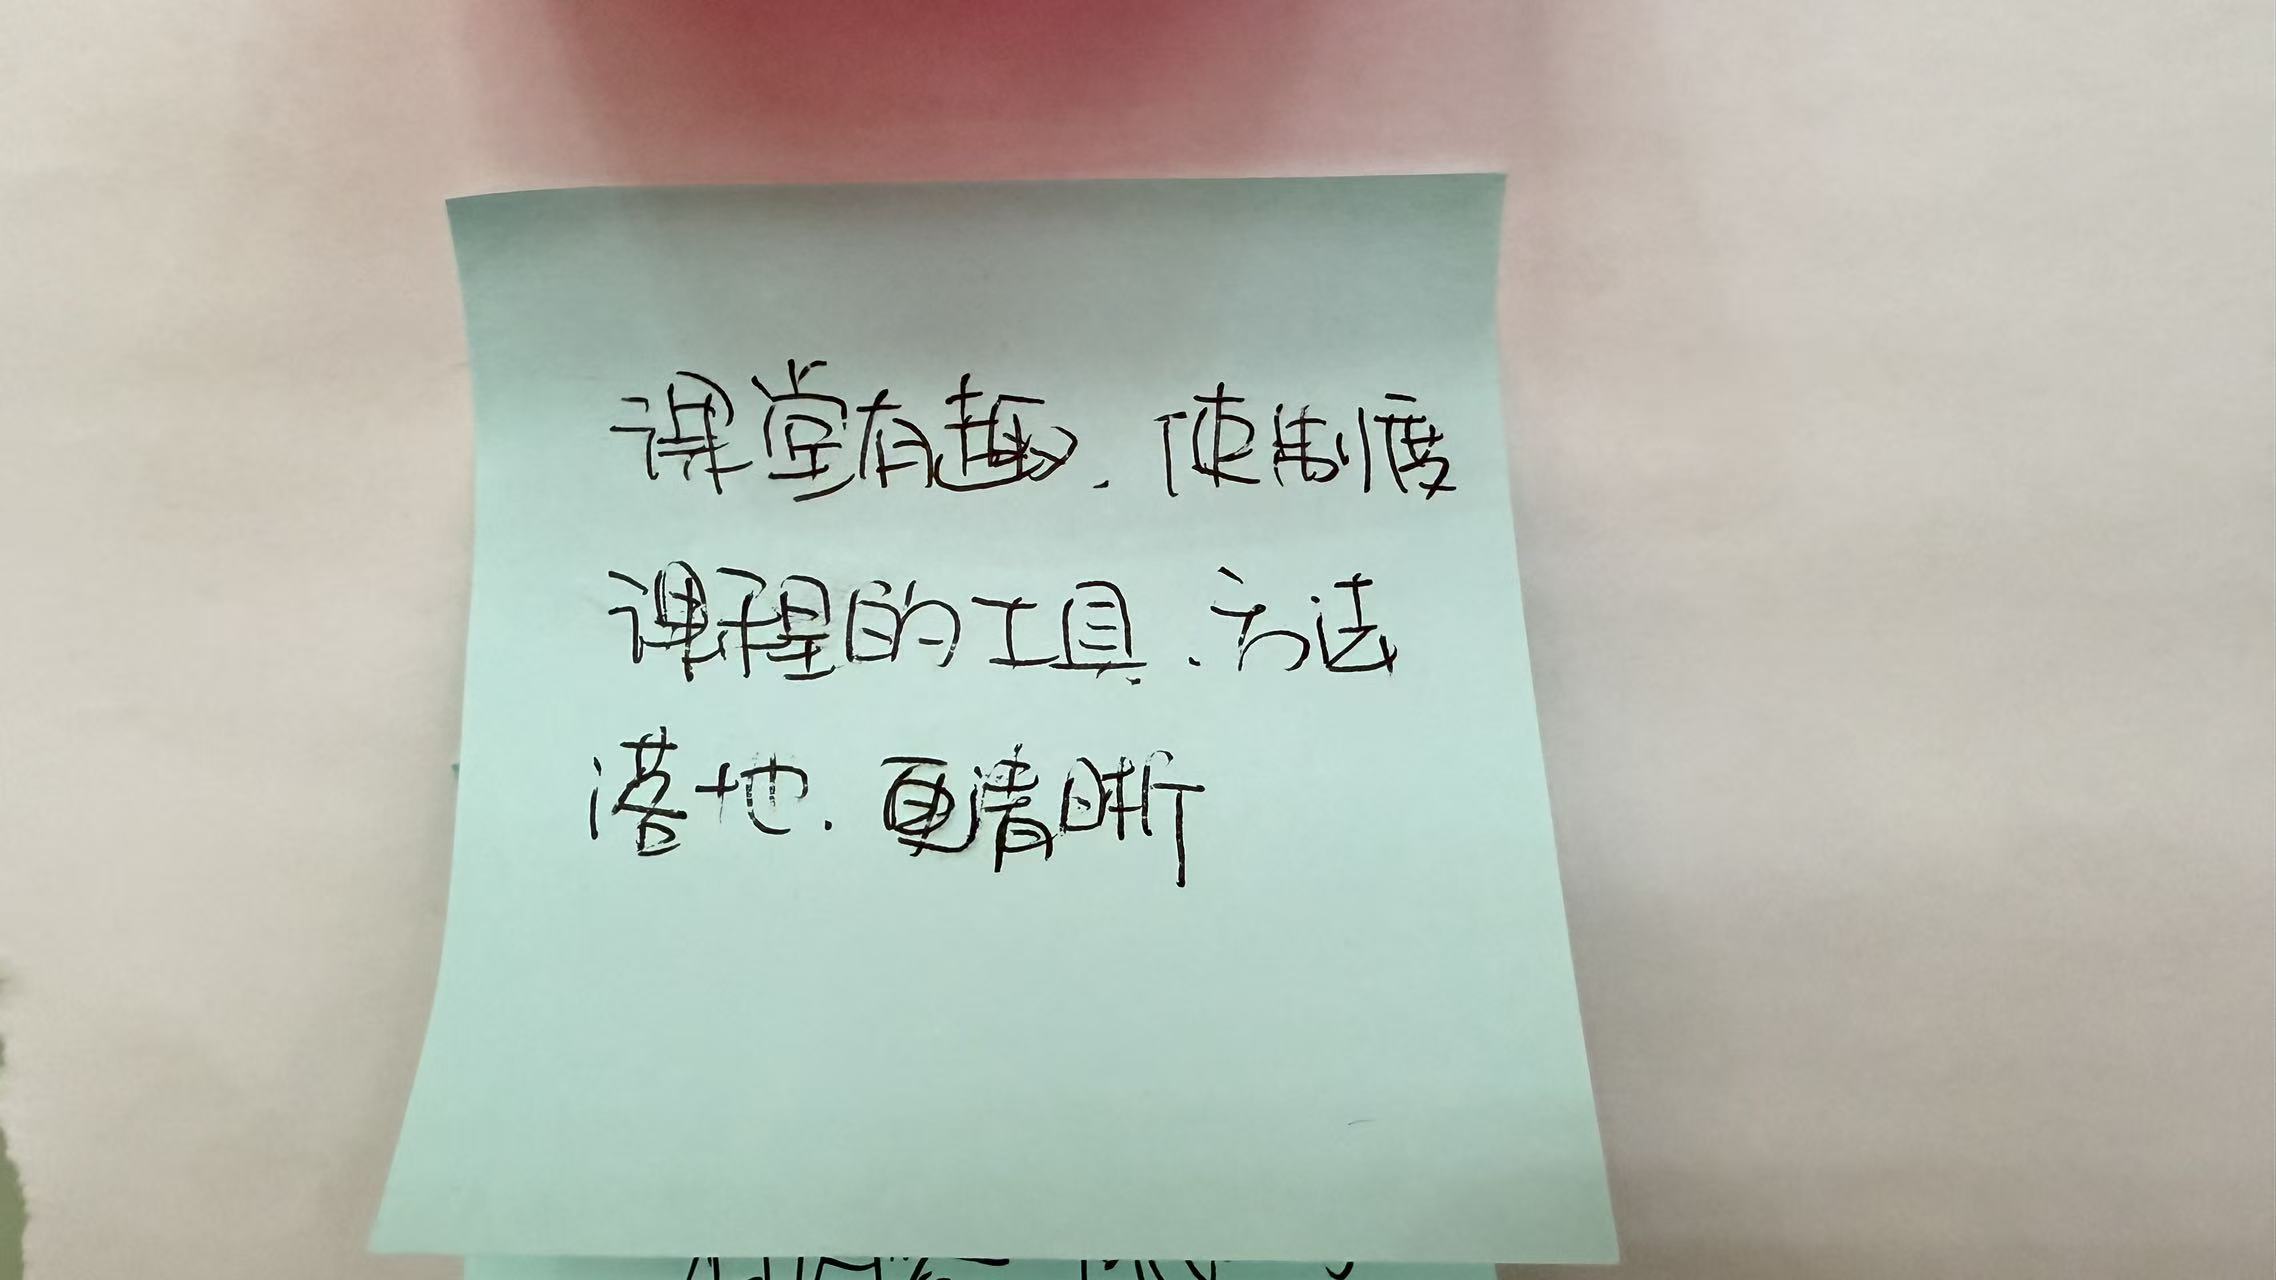 课堂有趣.使制度
课程的工具.方法
落地.更清晰